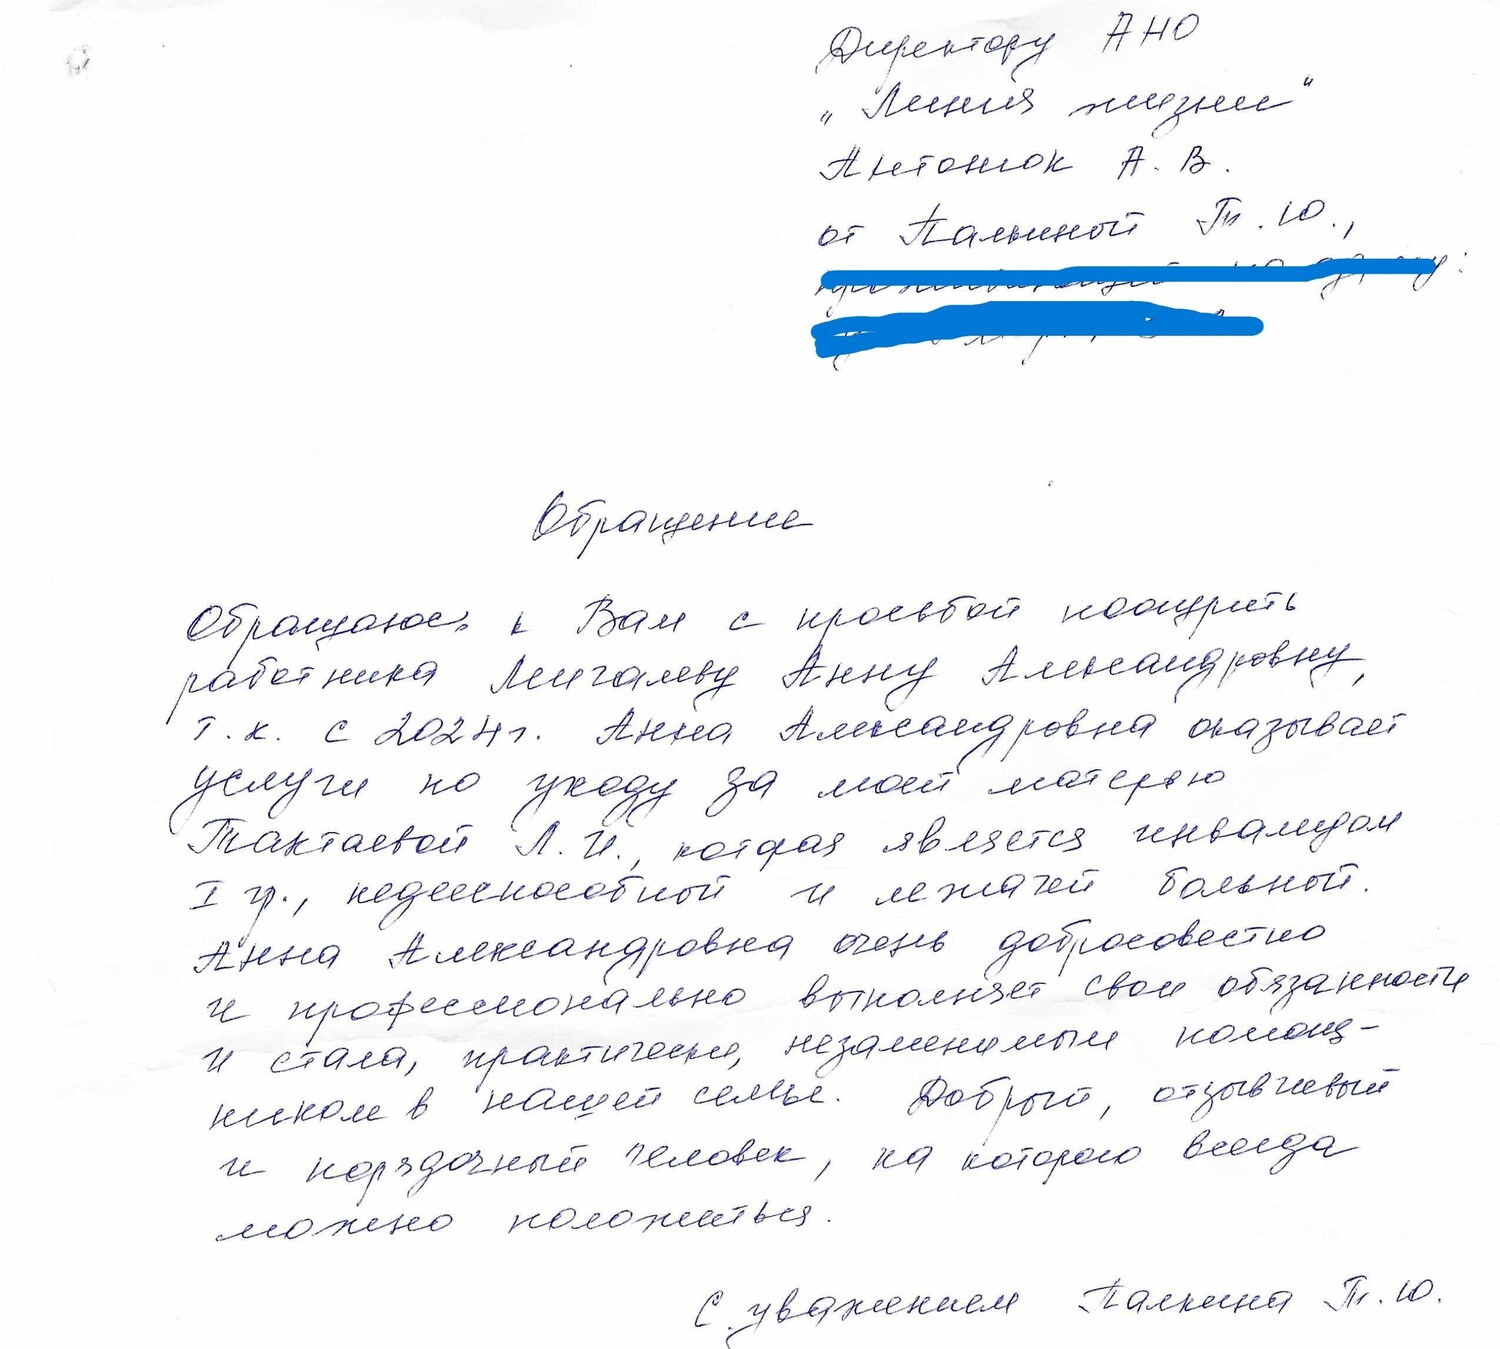 Директору АНО
"Линия жизни"
Антонюк А. В.
от Палкиной Т. Ю.,
Обращение
Обращаюсь к Вам с просьбой поощрить
работника Лигалеву Анну Александровну,
т. к. с 2024 г. Анна Александровна оказывает
услуги по уходу за моей матерью
Тактаевой Л. И., которая является инвалидом
I гр., недееспособной и лежачей больной.
Анна Александровна очень добросовестно
и профессионально выполняет свои обязанности
и стала, практически, незаменимым помощ-
ником в нашей семье. Добрый, отзывчивый
и порядочный человек, на которого всегда
можно положиться.
С уважением Палкина Т. Ю.